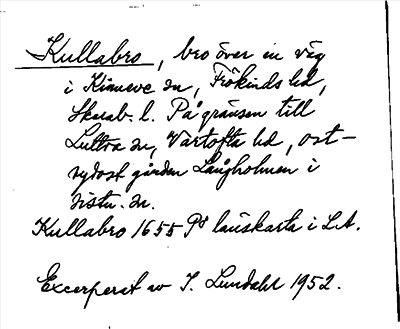 Kullabro, bro över en väg
i Kinneve sn, Frökinds hd,
Skarab. l. På gränsen till
Luttra sn, Vartofta hd, ost-
sydost gården Långholmen i
sistn. sn.
Kullabro 1655 På länskarta i LA.
Excerperat av I. Lundahl 1952.